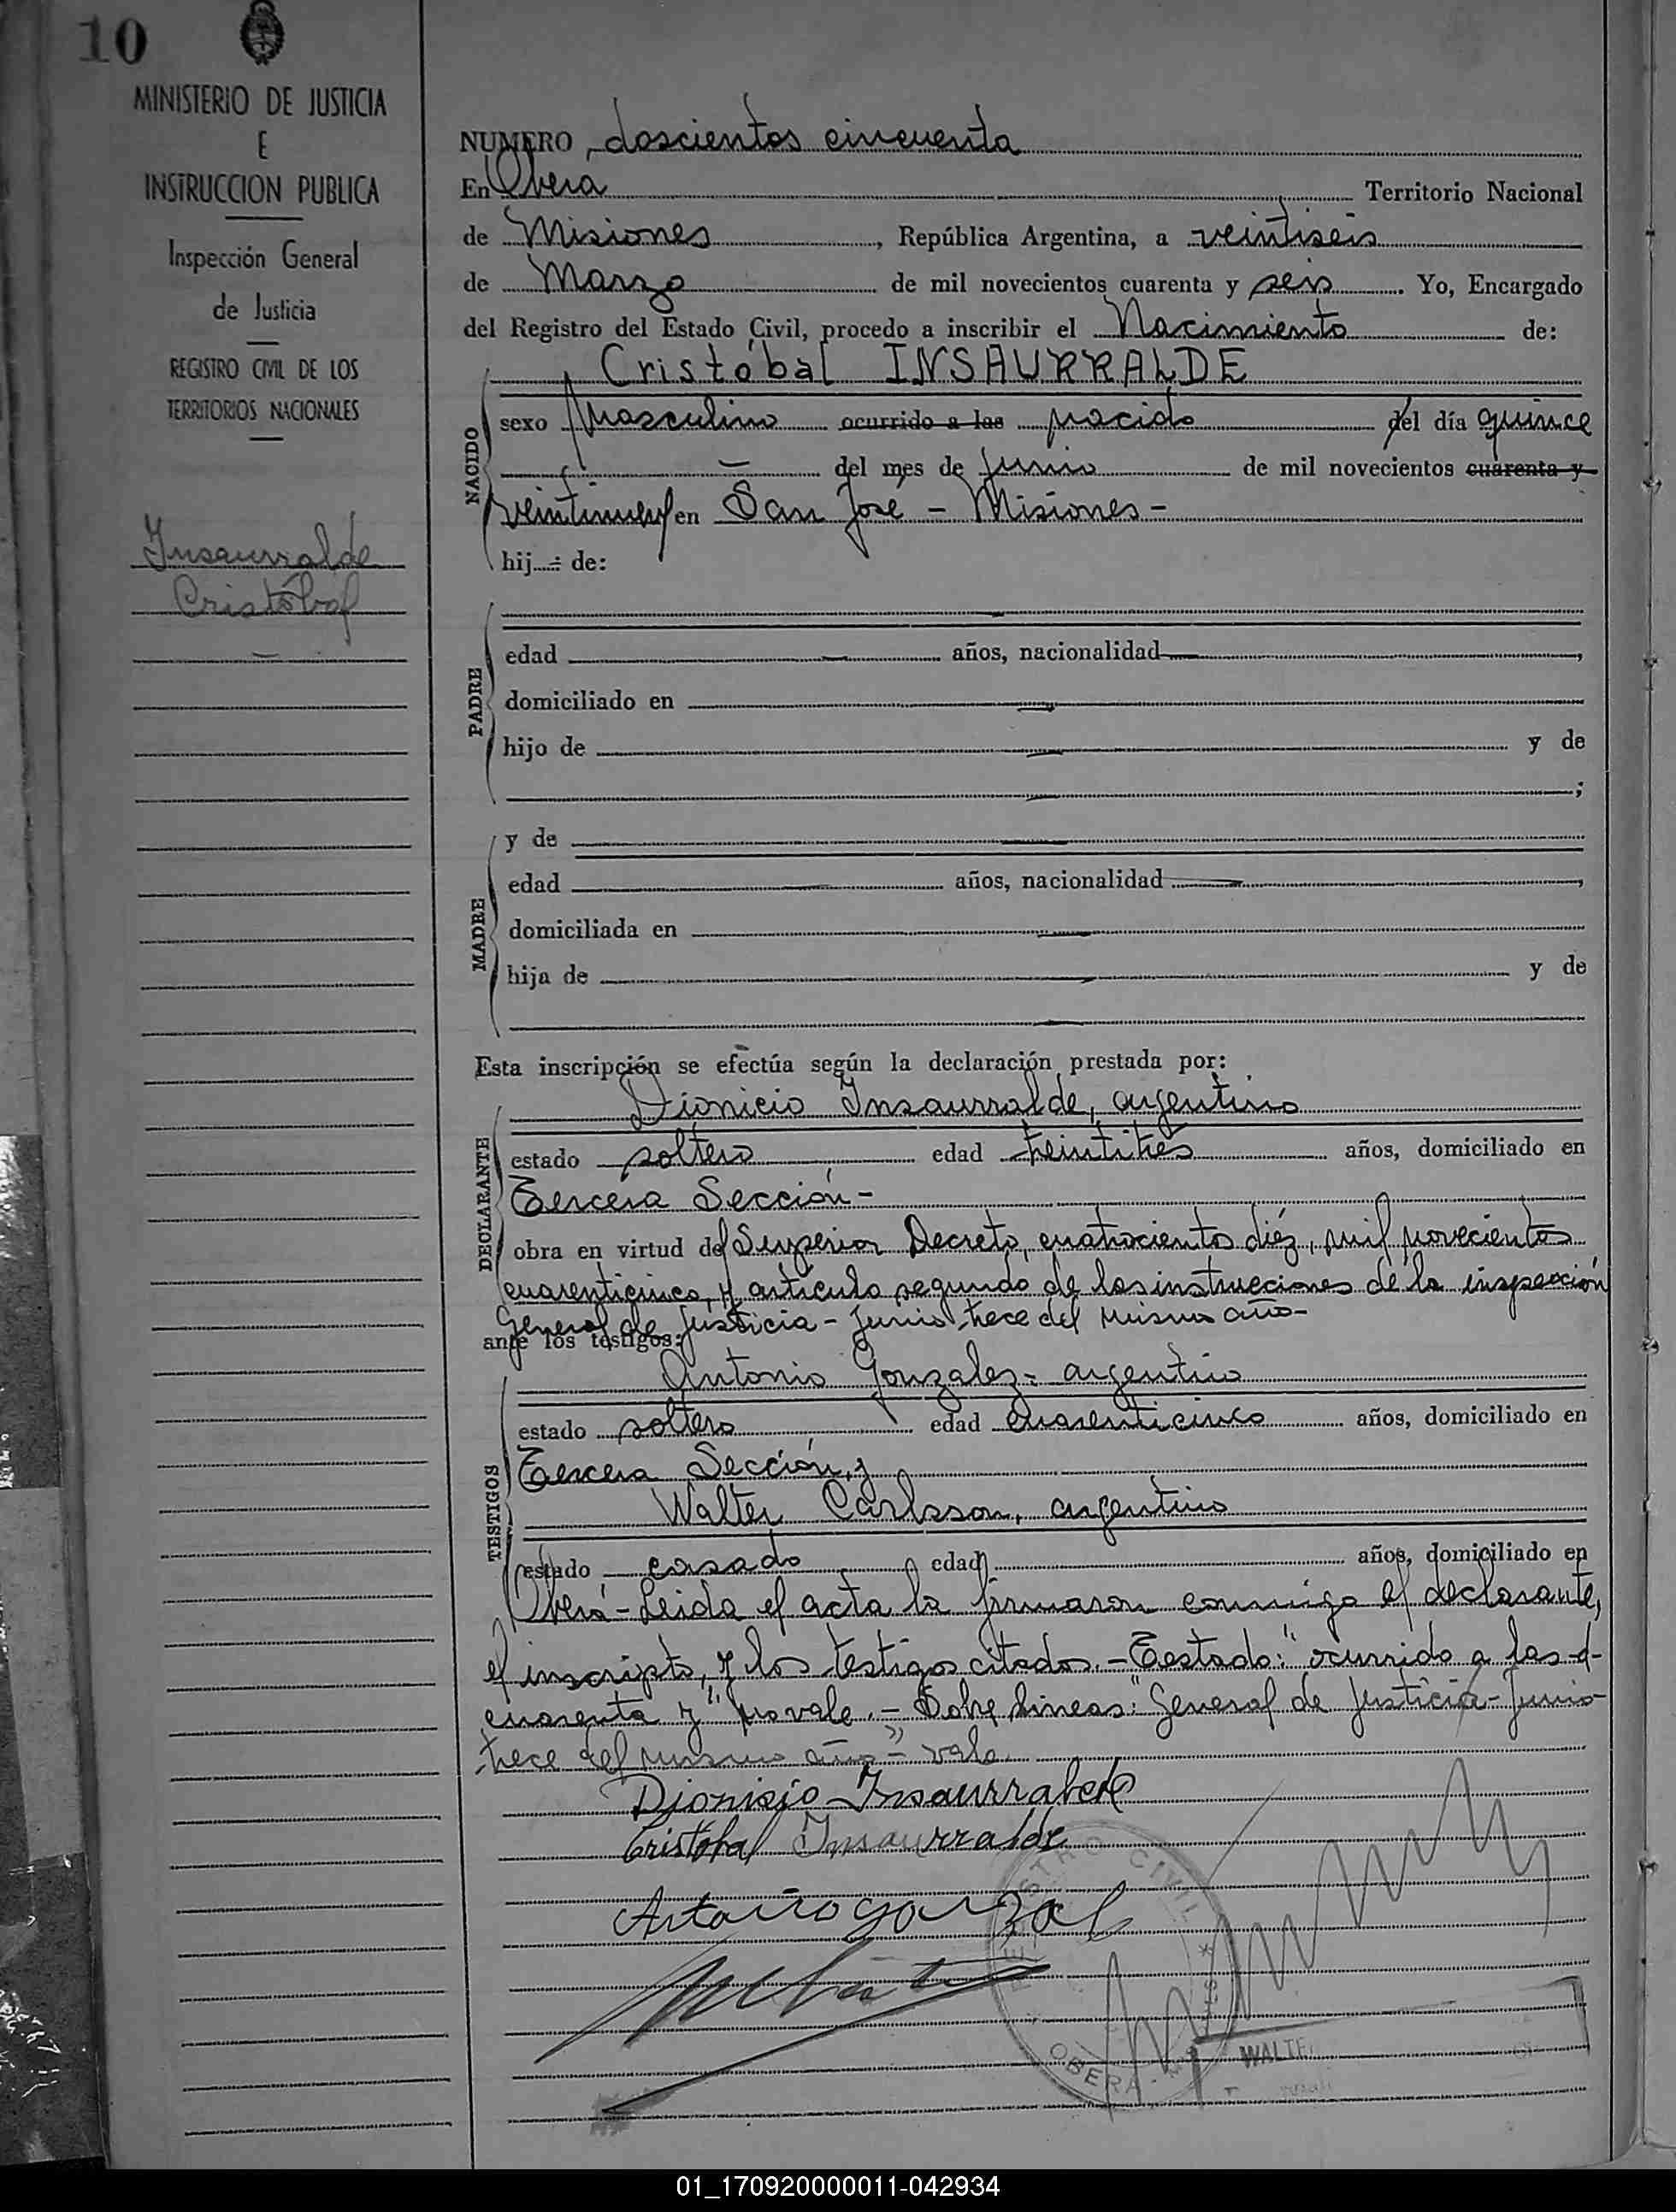 10
MINISTERIO DE JUSTICIA
E
INSTRUCCION PUBLICA
Inspección General
de Justicia
REGISTRO CIVIL DE LOS
TERRITORIOS NACIONALES
Insaurralde
Cristóbal
NUMERO doscientos cincuenta
En Obera Territorio Nacional
de Misiones, República Argentina, a veintiseis
de Marzo de mil novecientos cuarenta y seis. Yo, Encargado
del Registro del Estado Civil, procedo a inscribir el Nacimiento de:
Cristóbal INSAURRALDE
NACIDO
sexo Masculino ocurrido a las nacido del día quince
del mes de Junio de mil novecientos cuarenta y
en San José - Misiones -
hij de:
PADRE
edad años, nacionalidad,
domiciliado en
hijo de y de
;
MADRE
y de
edad años, nacionalidad,
domiciliada en
hija de y de
Esta inscripción se efectúa según la declaración prestada por:
DECLARANTE
Dionicio Insaurralde, argentino
estado soltero edad años, domiciliado en
Tercera Sección -
obra en virtud del Superior Decreto, cuatrocientos diéz, mil novecientos
cuarenticinco, y artículo segundo de las instrucciones de la inspección
General de Justicia - Junio trece del mismo año -
ante los testigos:
TESTIGOS
Antonio Gonzalez - argentino
estado soltero edad cuarenticinco años, domiciliado en
Tercera Sección, y
Walter Carlsson, argentino
estado casado edad años, domiciliado en
Oberá - Leida el acta la firmaron conmigo el declarante,
el inscripto, y los testigos citados. - Testado: "ocurrido a las - d -
cuarenta y" no vale. - Sobre lineas: "General de Justicia - Junio -
trece del mismo año" - vale
Dionisio Insaurralde
Cristobal Insaurralde
CIVIL
OBERA
WALTE
01_170920000011-042934